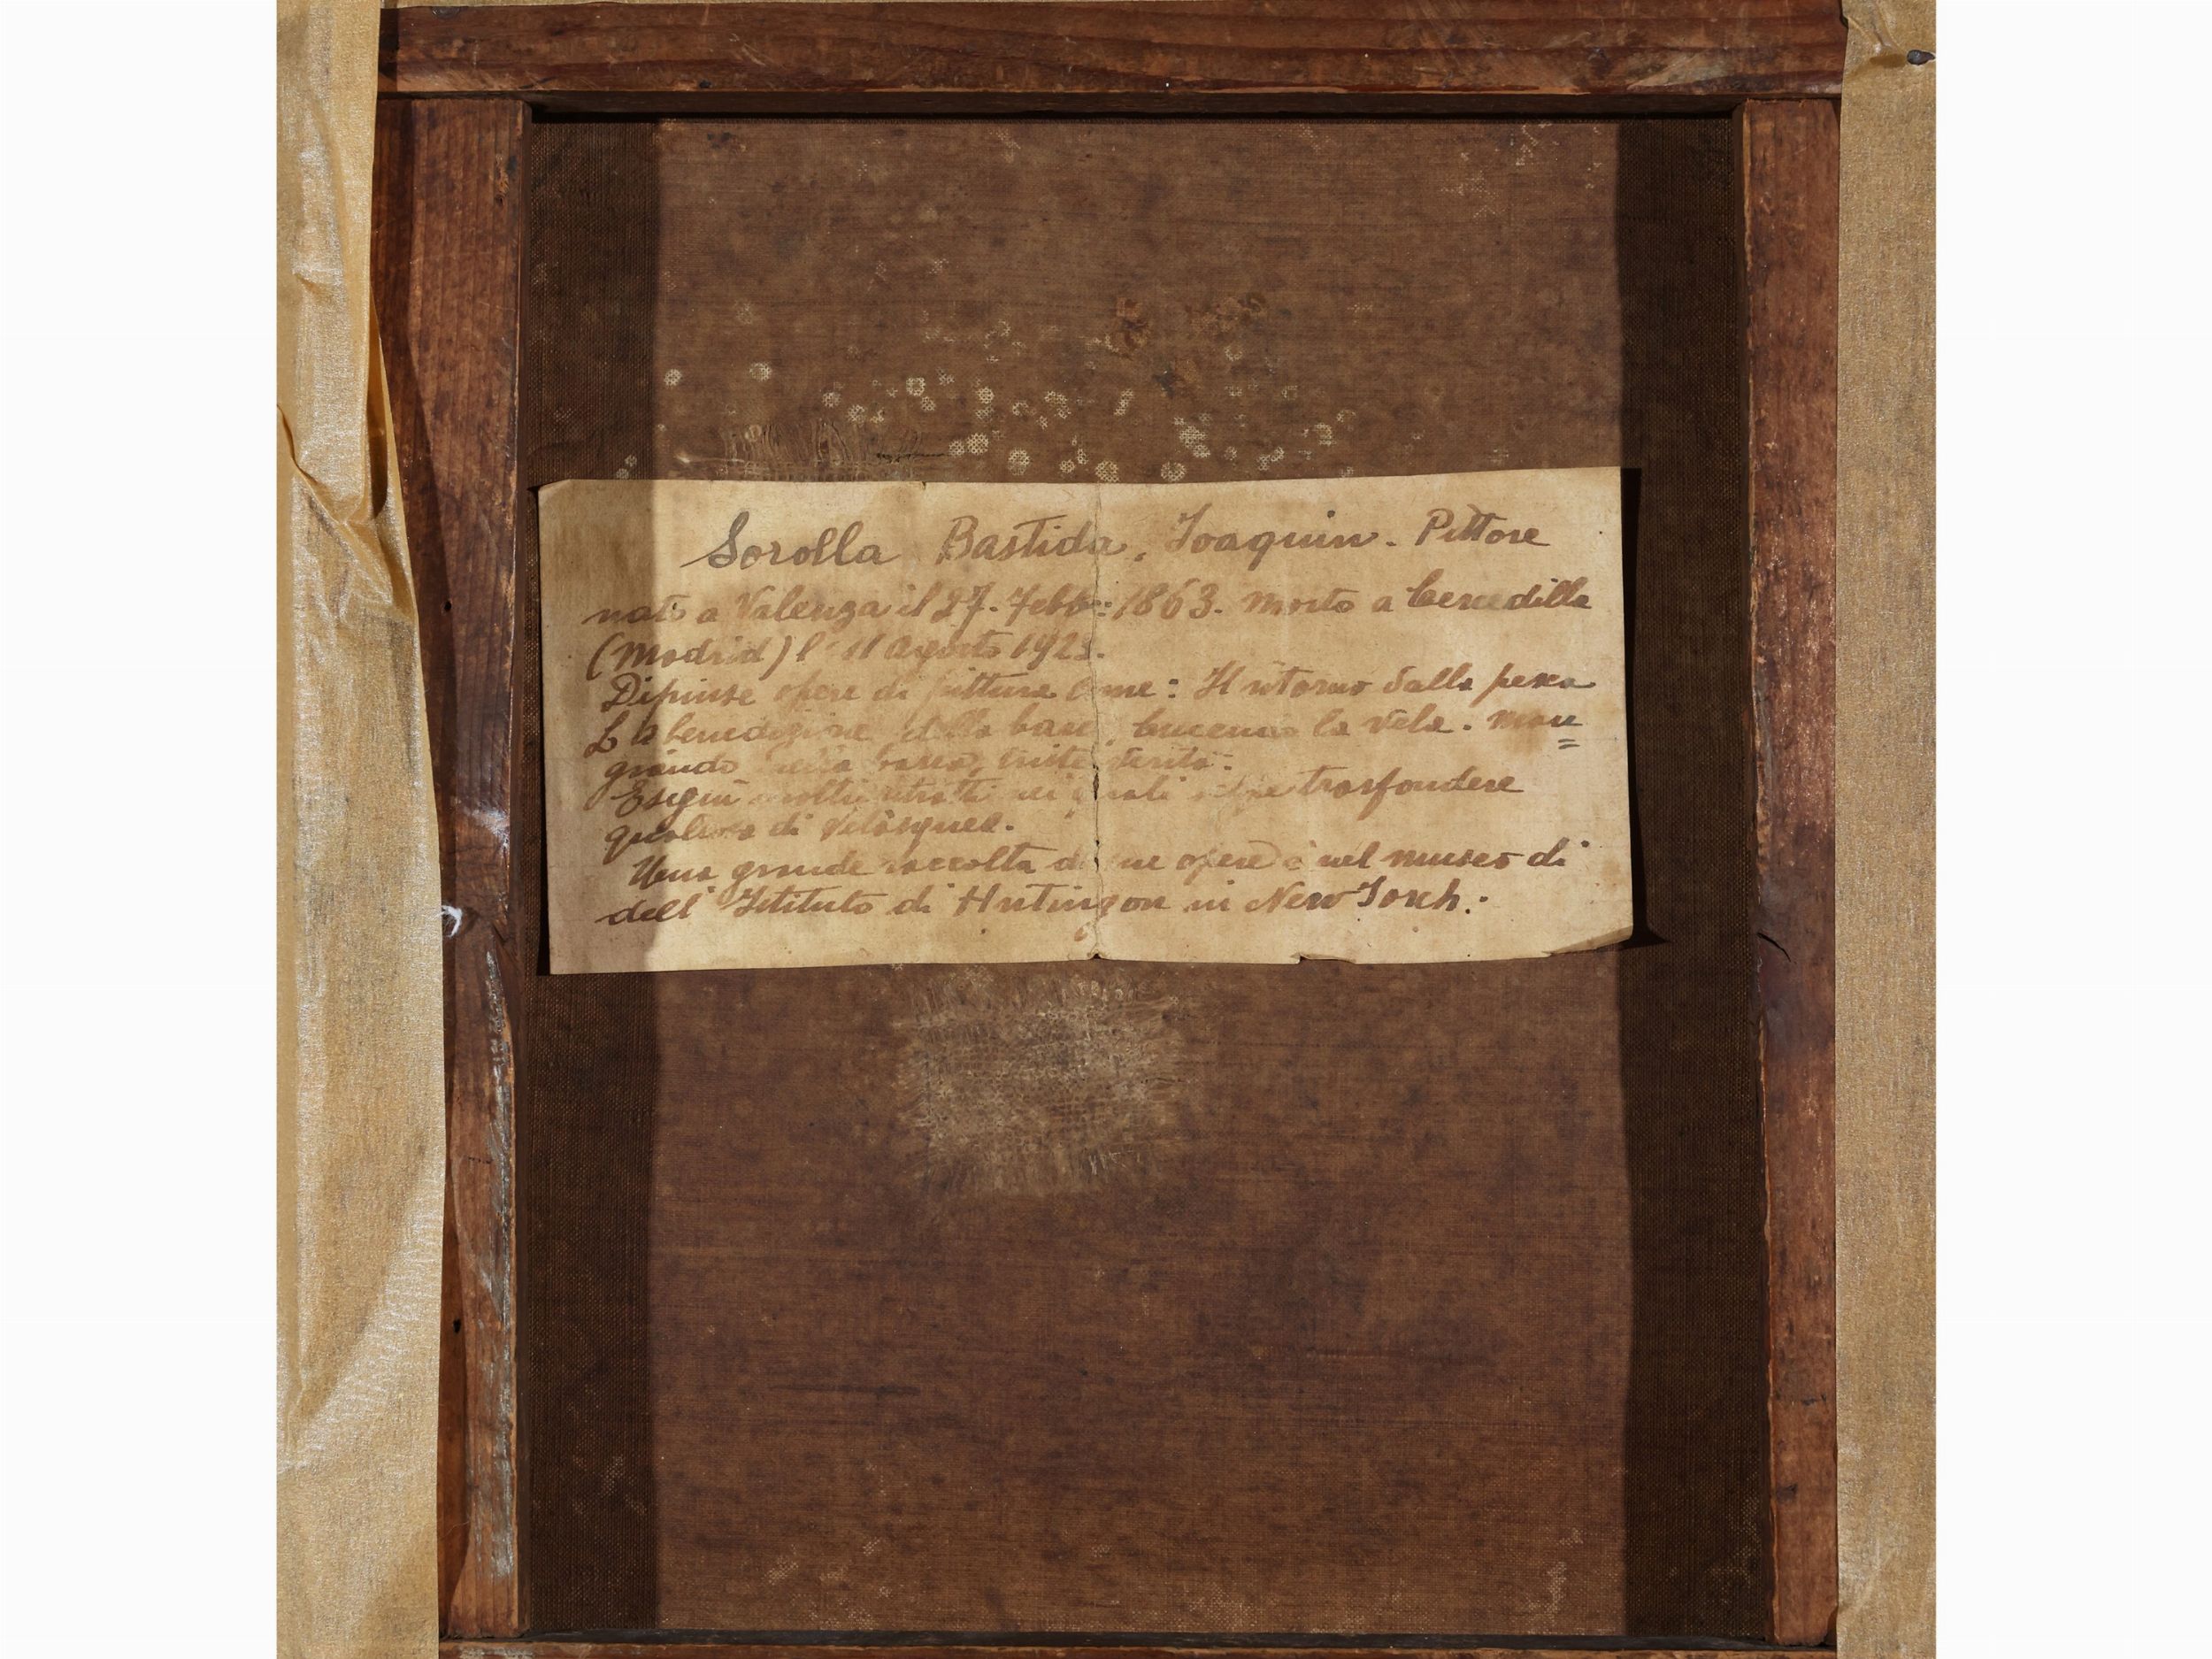 Sorolla Bastida, Joaquin. Pittore
nato a Valenza il 27. Febb: 1863. Morto a Cercedilla
(Madrid) l' 11 Agosto 192
Dipinse opere di pittura come: Il ritorno dalla pesca
La benedizione della barca, la vela. Man=
giando nella barca, triste
Eseguì molti ritratti nei quali trasfondere
qualcosa di Velàsquez.
Una grande raccolta di sue opere è nel museo di
dell' Istituto di Hntington in New Jorch.-